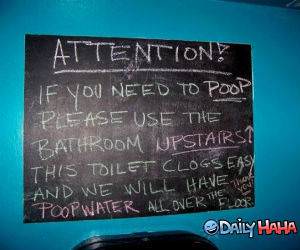 ATTENTION!
IF YOU NEED TO POOP
PLEASE USE THE
BATHROOM UPSTAIRS↑
THIS TOILET CLOGS EASY
AND WE WILL HAVE THANK YOU
POOPWATER ALL OVER THE FLOOR
DAILY HAHA